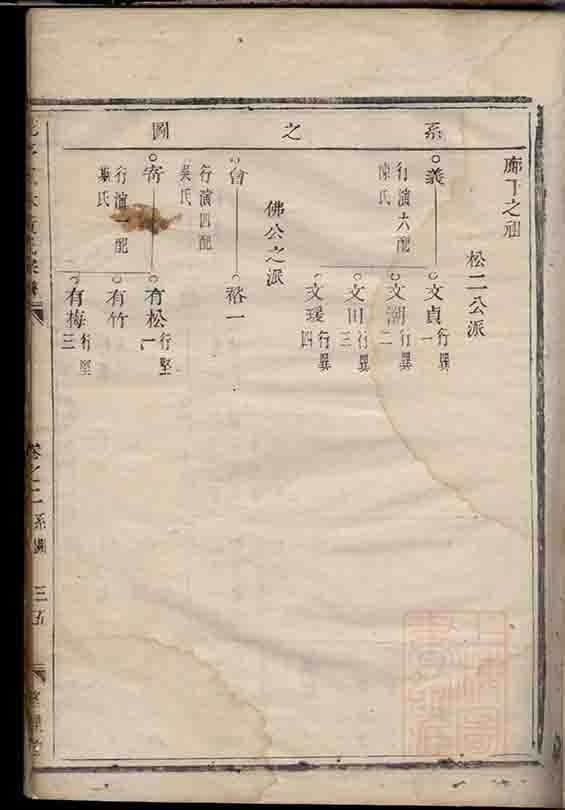 系之圖
廊下之祖
松二公派
義
行演六配
陳氏
文貞 行異一
文潮 行異二
文田 行異三
文瑗 行異四
佛公之派
會
行演四配
吳氏
裕一
寄
行演一配
葉氏
有松 行堅一
有竹
有梅 行堅三
卷之二 系圖 三五